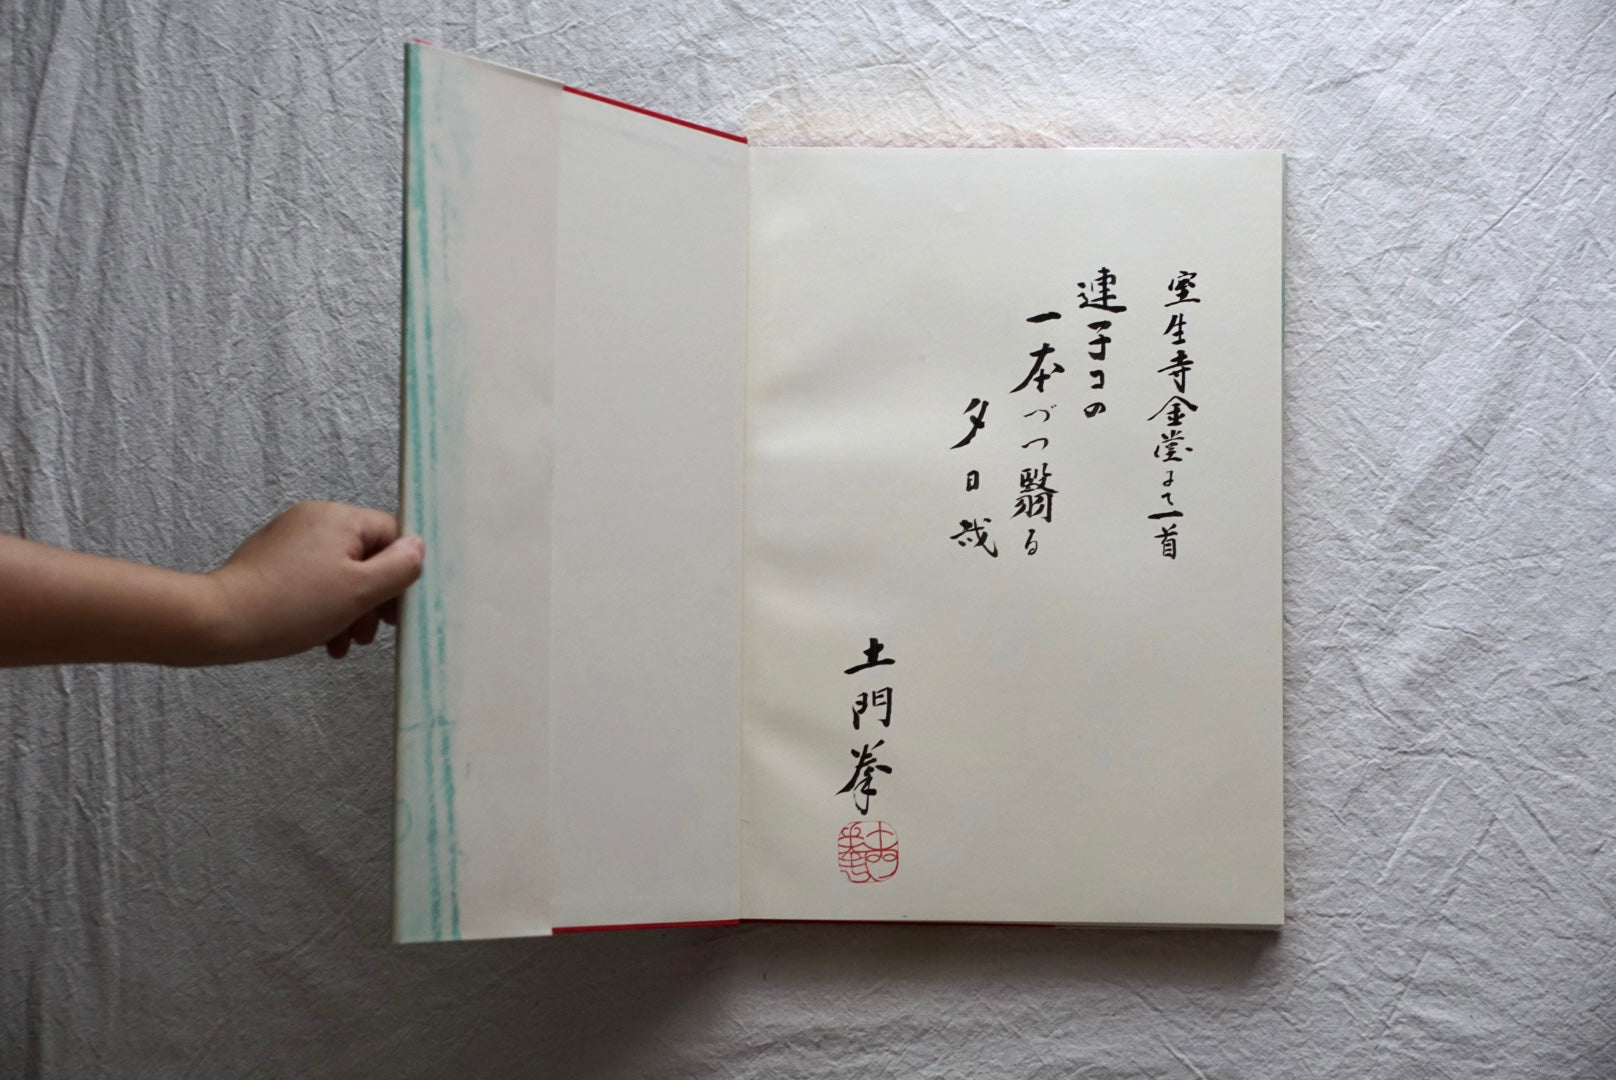 室生寺金堂よて一首
連子コの
一本づつ翳る
夕日哉
土門拳